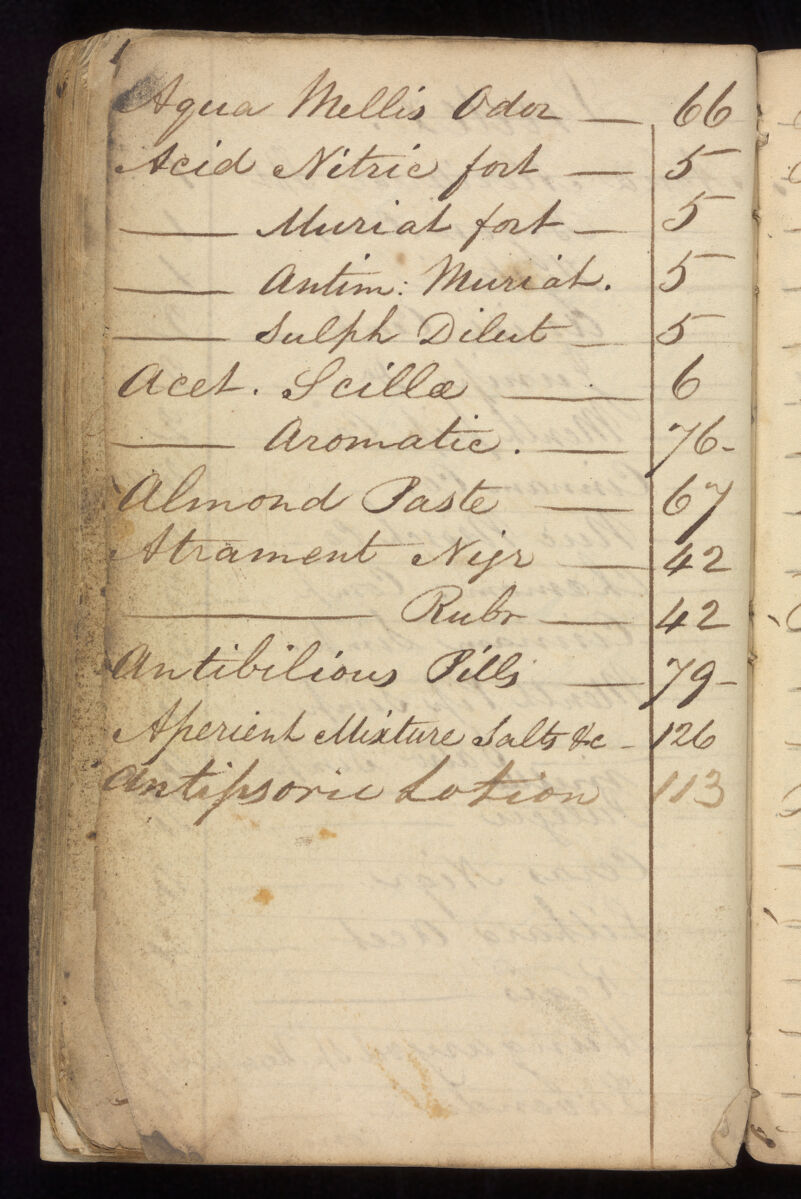 Aqua Mellis Odor — 66
Acid Nitric fort — 5
—— Muriat fort — 5
—— Antim: Muriat. 5
—— Sulph Dilut — 5
Acet. Scillæ —— 6
—— Aromatic. — 76-
Almond Paste — 67
Atrament Nigr — 42
—— Rubr — 42
Antibilious Pills — 79-
Aperient Mixture Salts &c - 126
Antipsoric Lotion 113